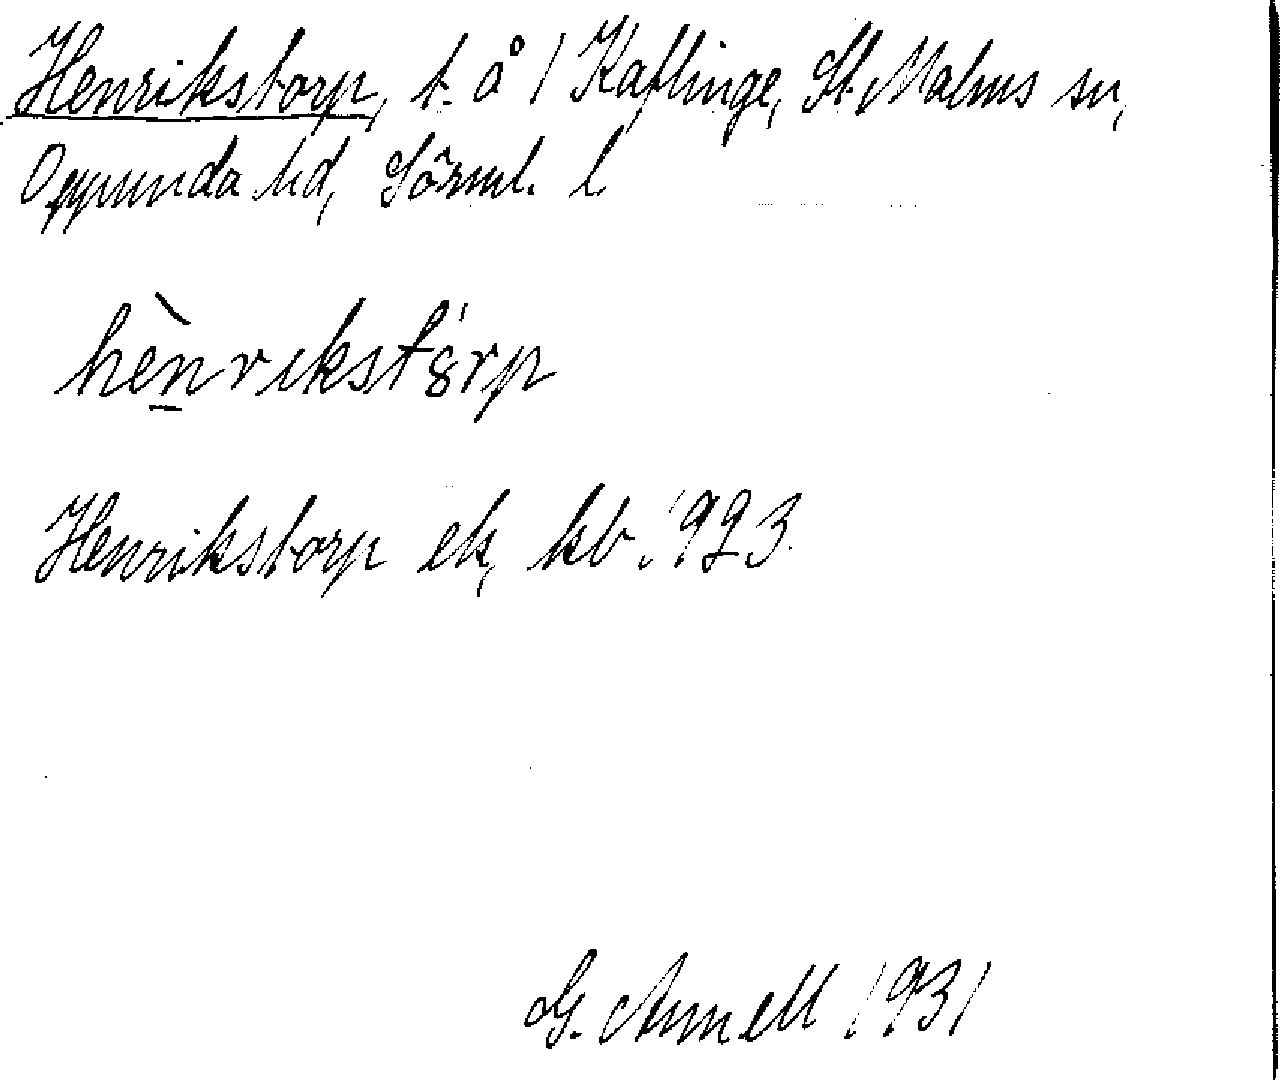 Henrikstorp, t. å 1 Kaflinge, St. Malms sn,
Oppunda hd, Sörml. l
hènrikstȯrp
Henrikstorp ek, kb. 1923.
G. Annell 1931